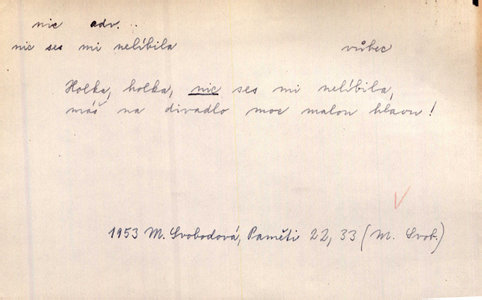 nic adv.
nic ses mi nelíbila vůbec
Holka, holka, nic ses mi nelíbila,
máš na divadlo moc malou hlavu!
1953 M. Svobodová, Paměti 22, 33 (M. Svob.)